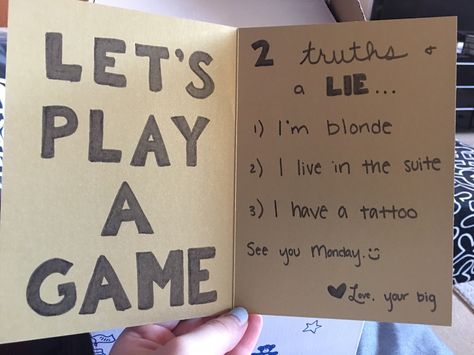 LET'S
PLAY
A
GAME
2 truths &
a LIE...
1) I'm blonde
2) I live in the suite
3) I have a tattoo
See you Monday. :)
♥Love, your big